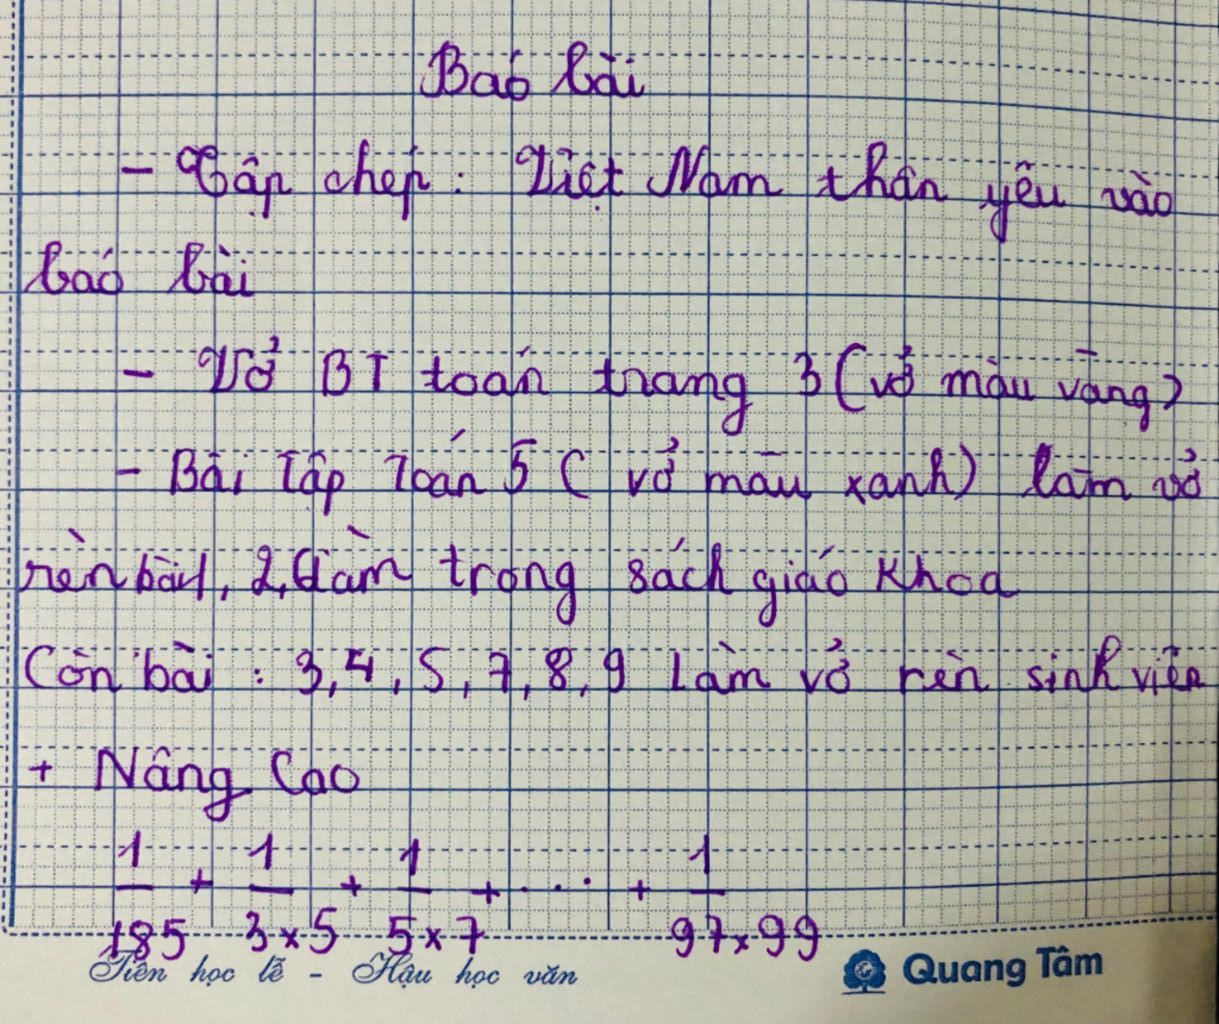 Baó bài
- Tập chép: Việt Nam thân yêu vào
baó bài
- Vở BT toán trang 3 (vở màu vàng)
- Bài Tập Toán 5 ( vở màu xanh) làm vở
rèn bài 1, 2, làm trong sách giáo khoa
Còn bài : 3, 4, 5, 7, 8, 9 Làm vở rèn sinh viên
+ Nâng Cao
1/185 + 1/3×5 + 1/5×7 + ... + 1/97×99
Tiên học lễ - Hậu học văn
Quang Tâm